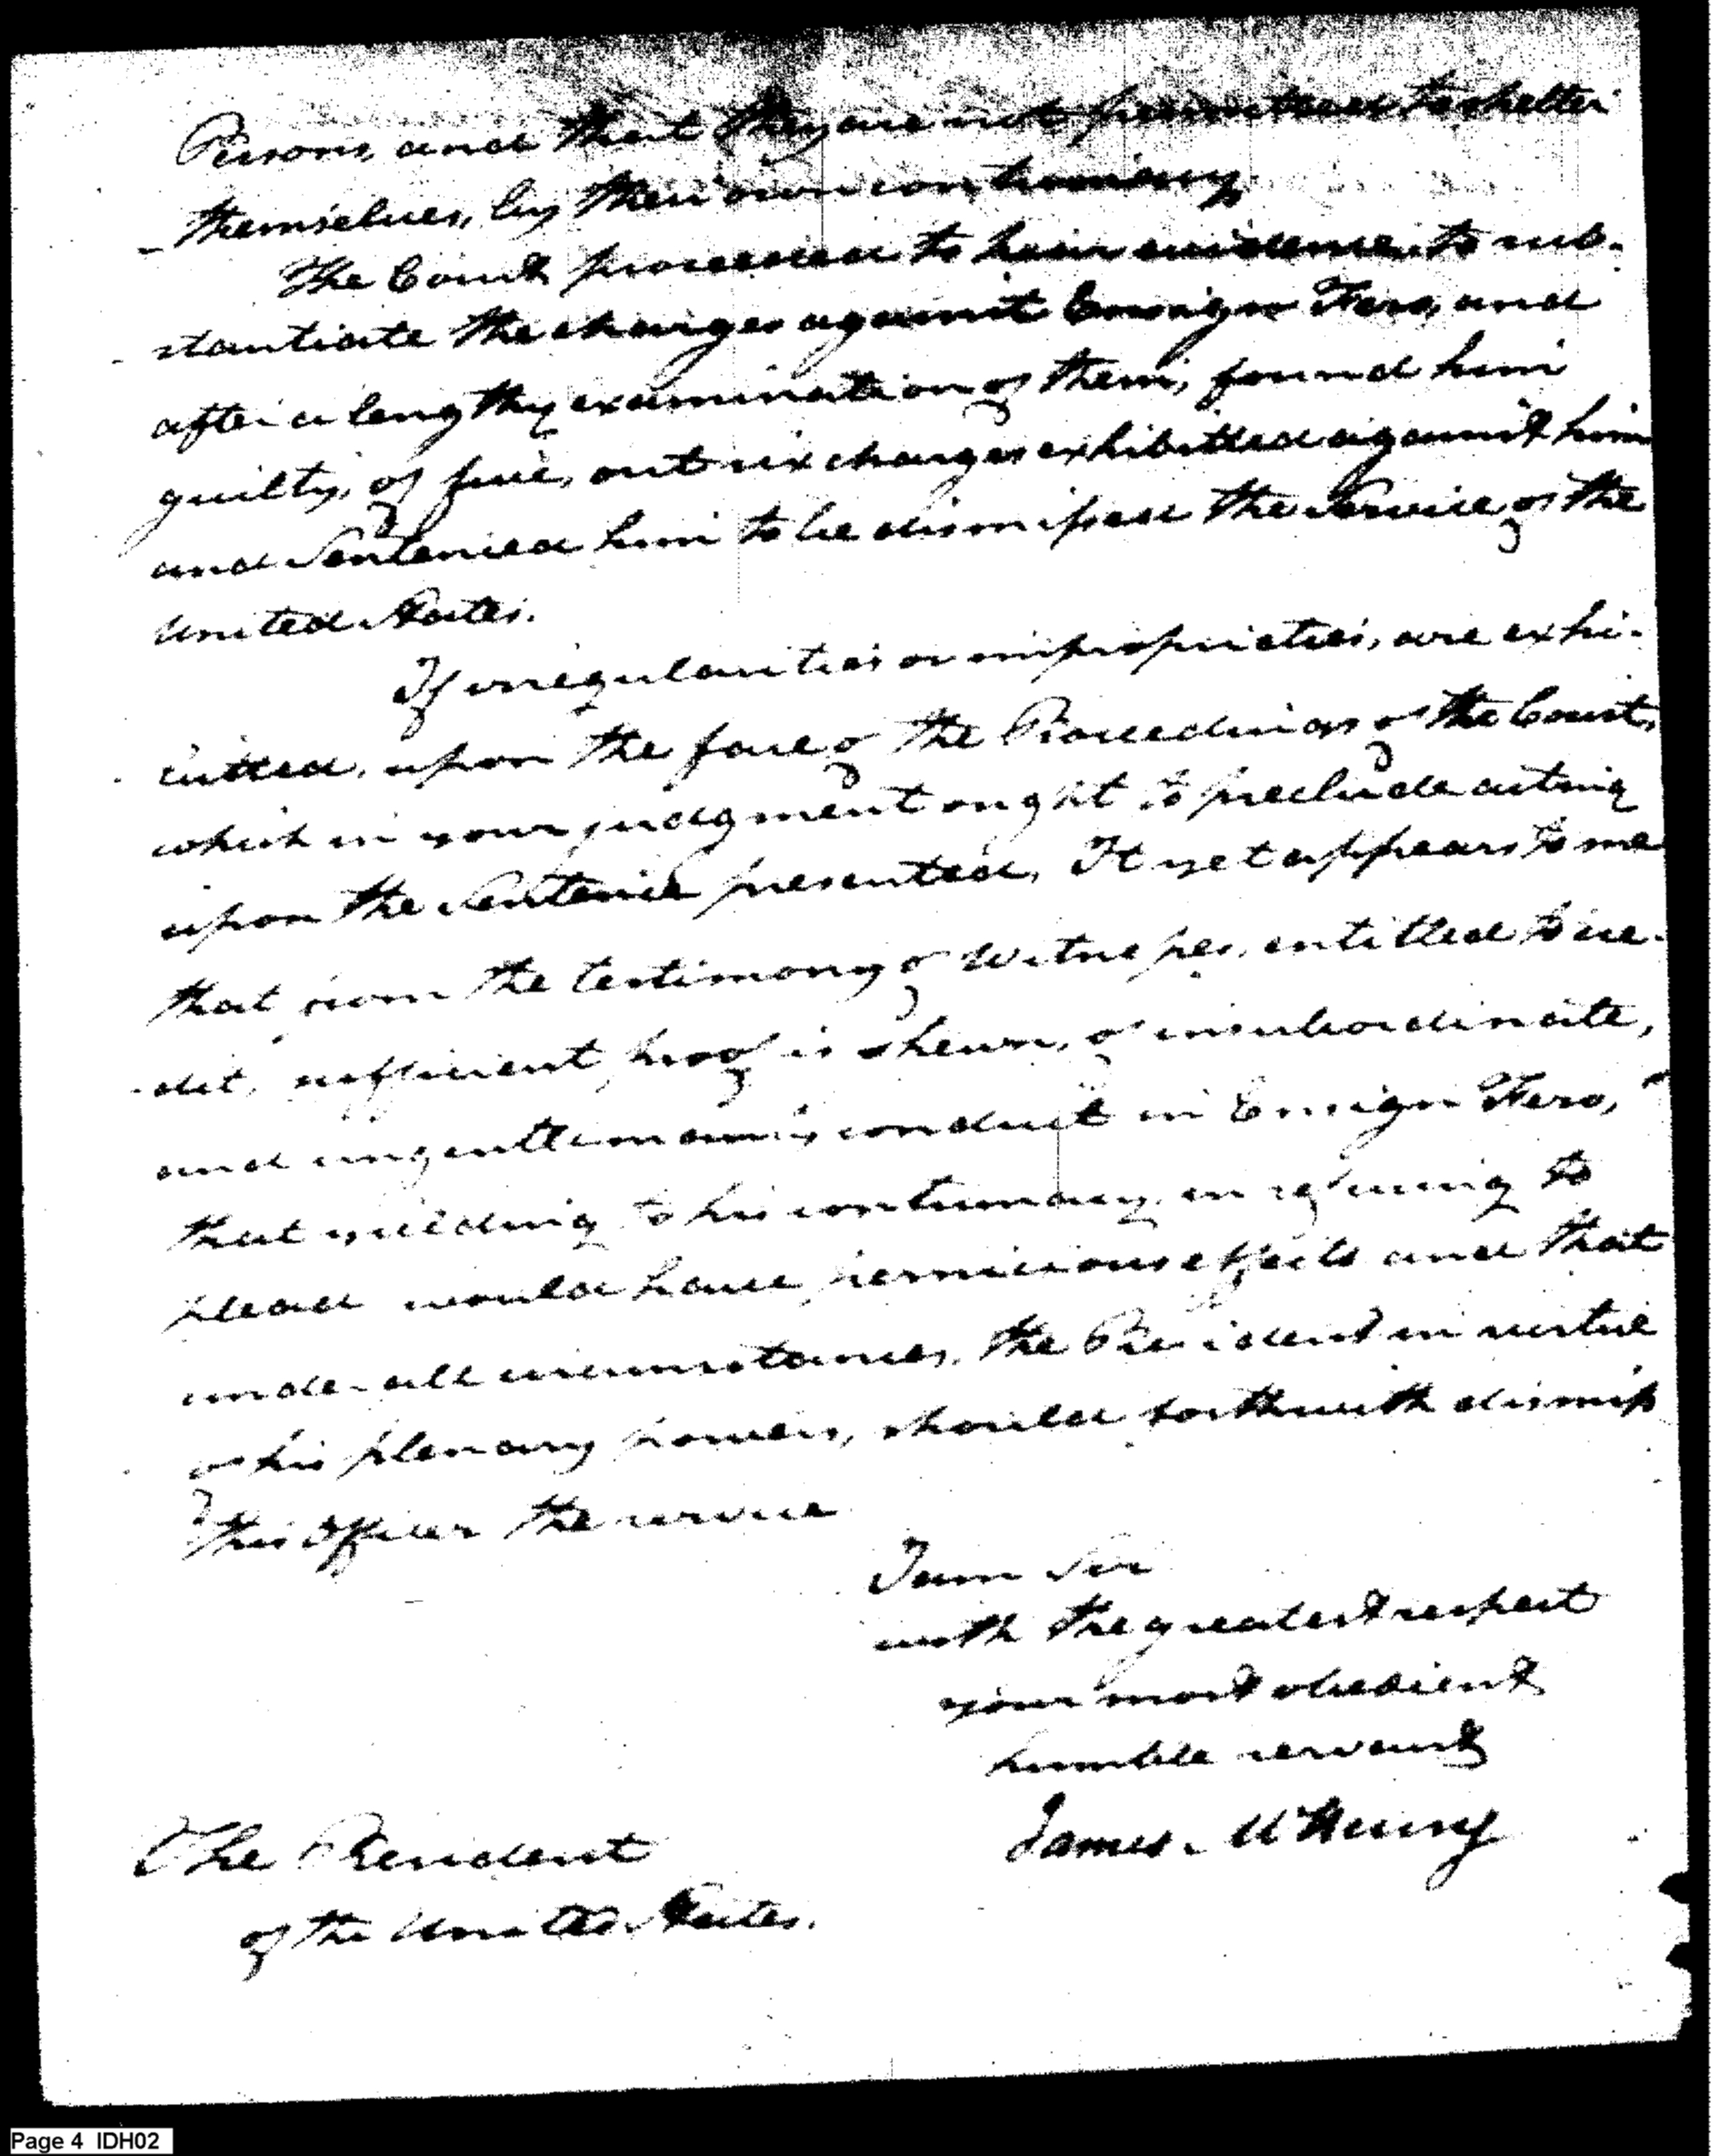 Persons, and that they are not permitted to shelter
themselves, by their own contumacy.
The Court proceeded to hear evidence, to sub-
stantiate the charges against Ensign Fero, and
after a lengthy examination of them, found him
guilty, of five, out six charges exhibitted against him
and Sentenced him to be dismissed the Service of the
United States.
If irregularities or improprieties, are exhi-
bitted, upon the face of the Proceedings of the Court,
which in your judgment ought to preclude acting
upon the Sentence presented, It yet appears to me
that from the testimony of Witnesses, entitled to cre-
dit, sufficient proof is shewn, of insubordinate,
and ungentlemanly conduct in Ensign Fero,
that yielding to his contumacy, in refusing to
plead would have pernicious effects and that
under all circumstances, the President in virtue
of his plenary powers, should forthwith dismiss
this Officer the service
I am Sir
with the greatest respect
your most obedient
humble servant
James McHenry
The President
of the United States.
Page 4 IDH02